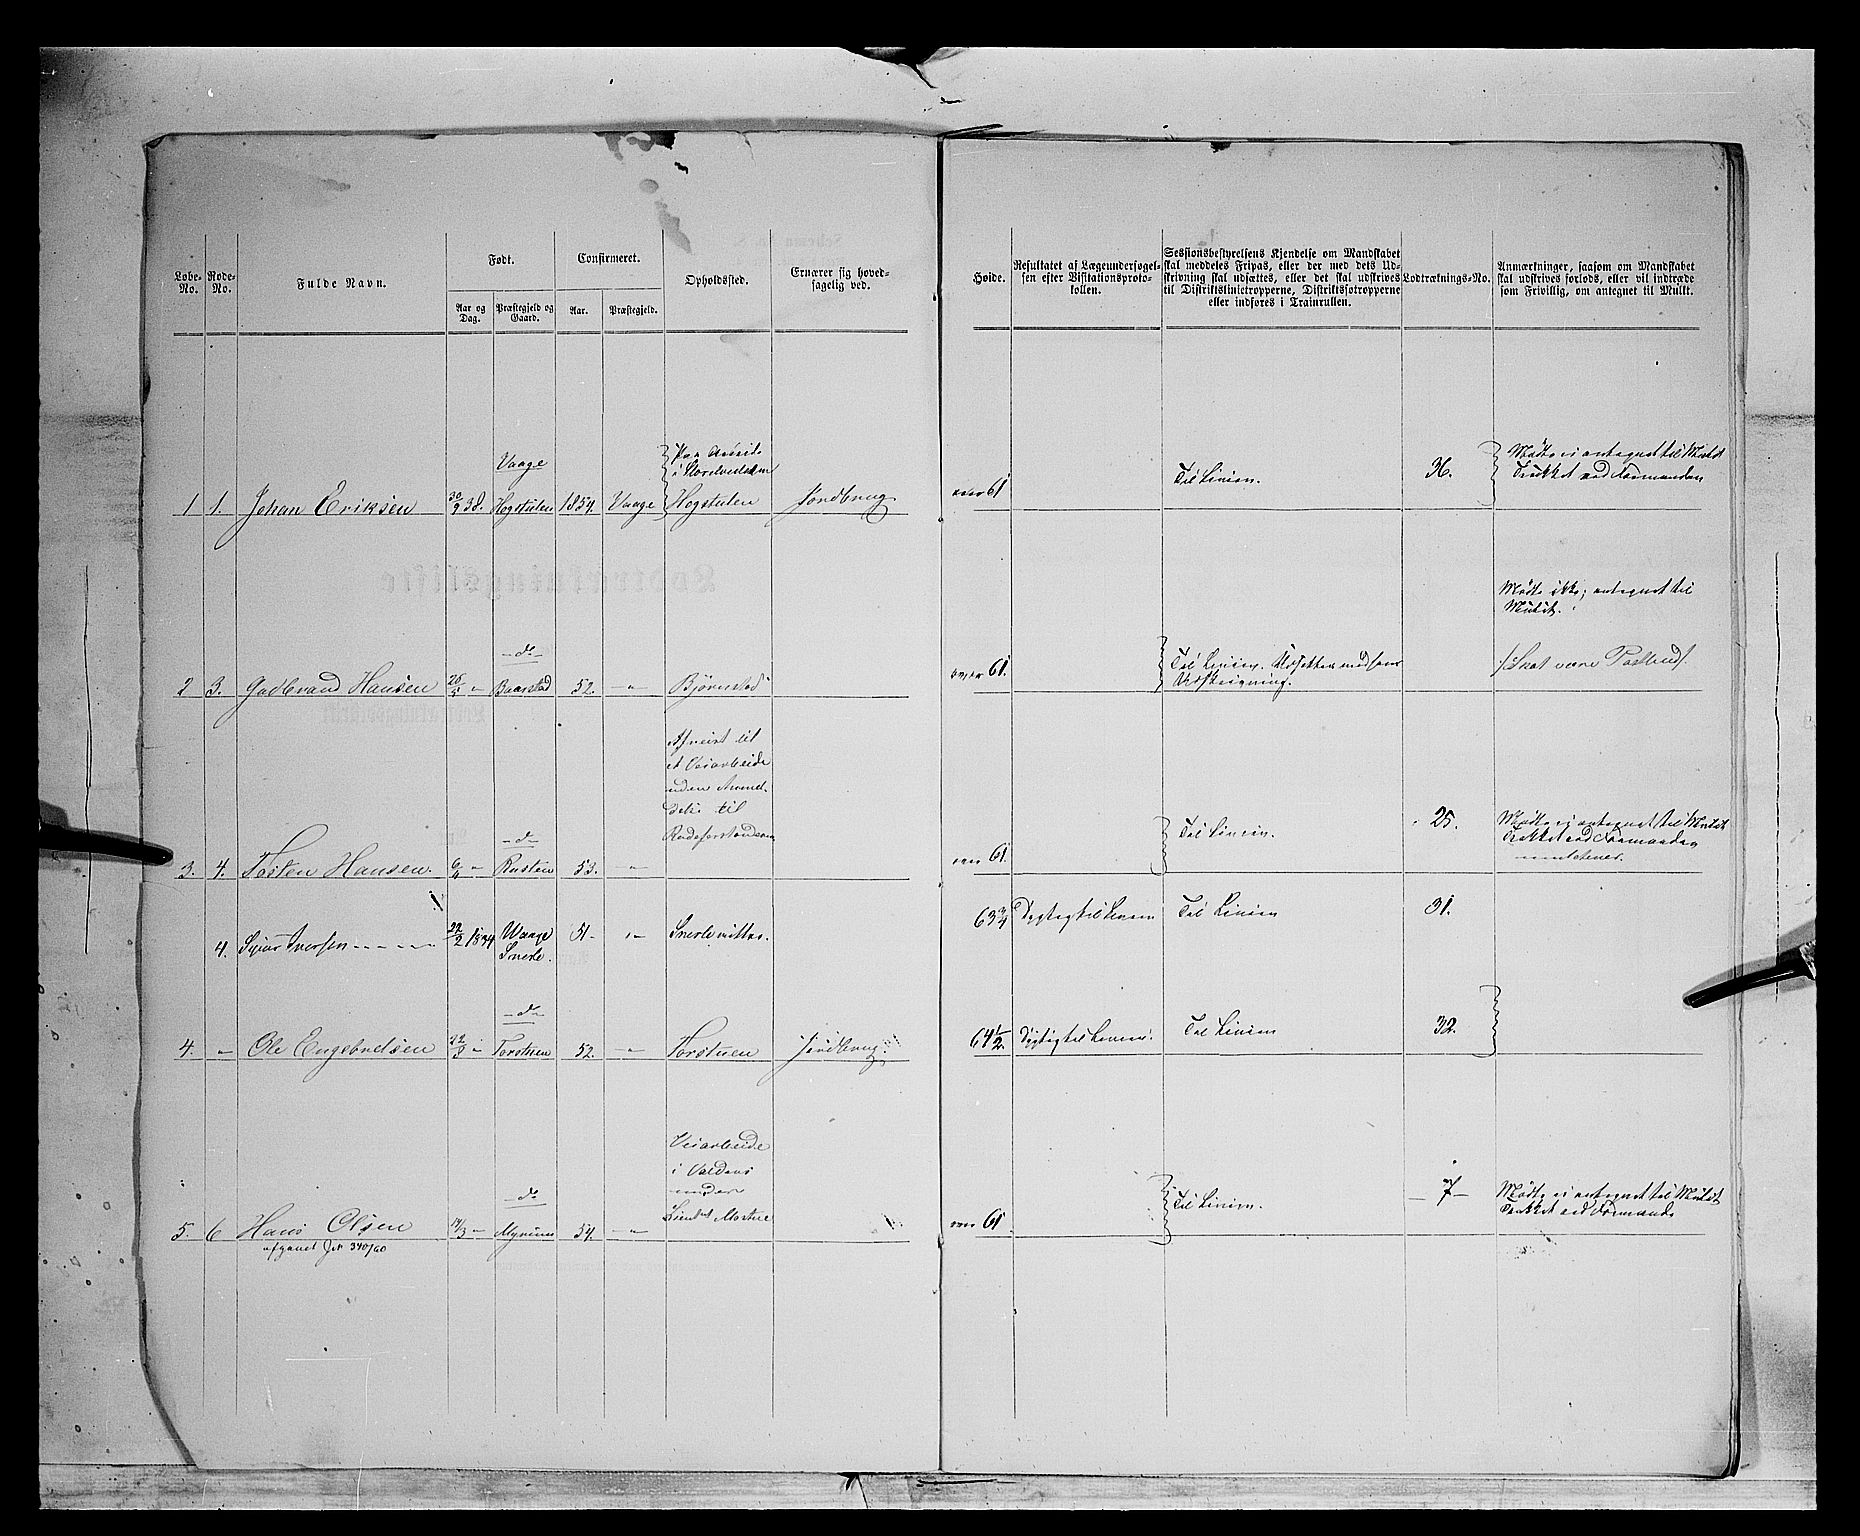 Løbe-No.
Rode-No.
Fulde Navn.
Født.
Aar og Dag.
Præstegjeld og Gaard.
Confirmeret.
Aar.
Præstegjeld.
Opholdssted.
Ernærer sig hoved-
sagelig ved.
Høide.
Resultatet af Lægeundersøgel-
sen efter Visitationsproto-
kollen.
Sessionsbestyrelsens Kjendelse om Mandskabet
skal meddeles Fripas, eller der med dets Ud-
skrivning skal udsættes, eller det skal udskrives
til Distriktslinietropperne, Distriktsfotropperne
eller indføres i Trainrullen.
Lodtræknings-No.
Anmærkninger, saasom om Mandskabet
skal udskrives forlods, eller vil indtræde
som Frivillig, om antegnet til Mulkt.
Vaage
Paa Arbeide
i Storelvedalen
1 1. Johan Eriksen 30/9 38. Hogstulen 1854. Vaage Hogstulen Jordbrug over 61 Til Linien. 36.
Mødte ei antegnet til Mulkt
Trukket ved Formanden
Mødte ikke; antegnet til
Mulkt.
-do-
2 3. Gudbrand Hansen 26/5 " Baarstad 52. -"- Bjørnstad over 61. Til Linien. Udsættes med hans
Udskrivning.
/: Skal være Postbud :/
Afreist til
et Veiarbeide
uden Anmel-
delse til
Rodeforstanderen
-do-
3. 4. Tosten Hansen. 6/4 " Rusten 53. -"- over 61. Til Linien. 25.
Mødte ei antegnet til Mulkt
Trukket ved Formanden
4. Syver Iversen 22/2 1834 Waage
Snerle. 51- -"- Snerle 63 3/4 Dygtig til Linien Til Linien 31.
-do-
4. " Ole Engebretsen 22/8 " Forstuen 52. -"- Forstuen Jordbrug. 64 1/2. Dygtig til Linien. Til Linien 32.
Veiarbeide
i Valders
under
Lieutnt
-do-
5. 6 Hans Olsen 14/3 " Myrum 54. -"- over 61. Til Linien. -7-
afgaaet J.N. 340/60
Mødte ei antegnet til Mulkt
Trukket ved Formand